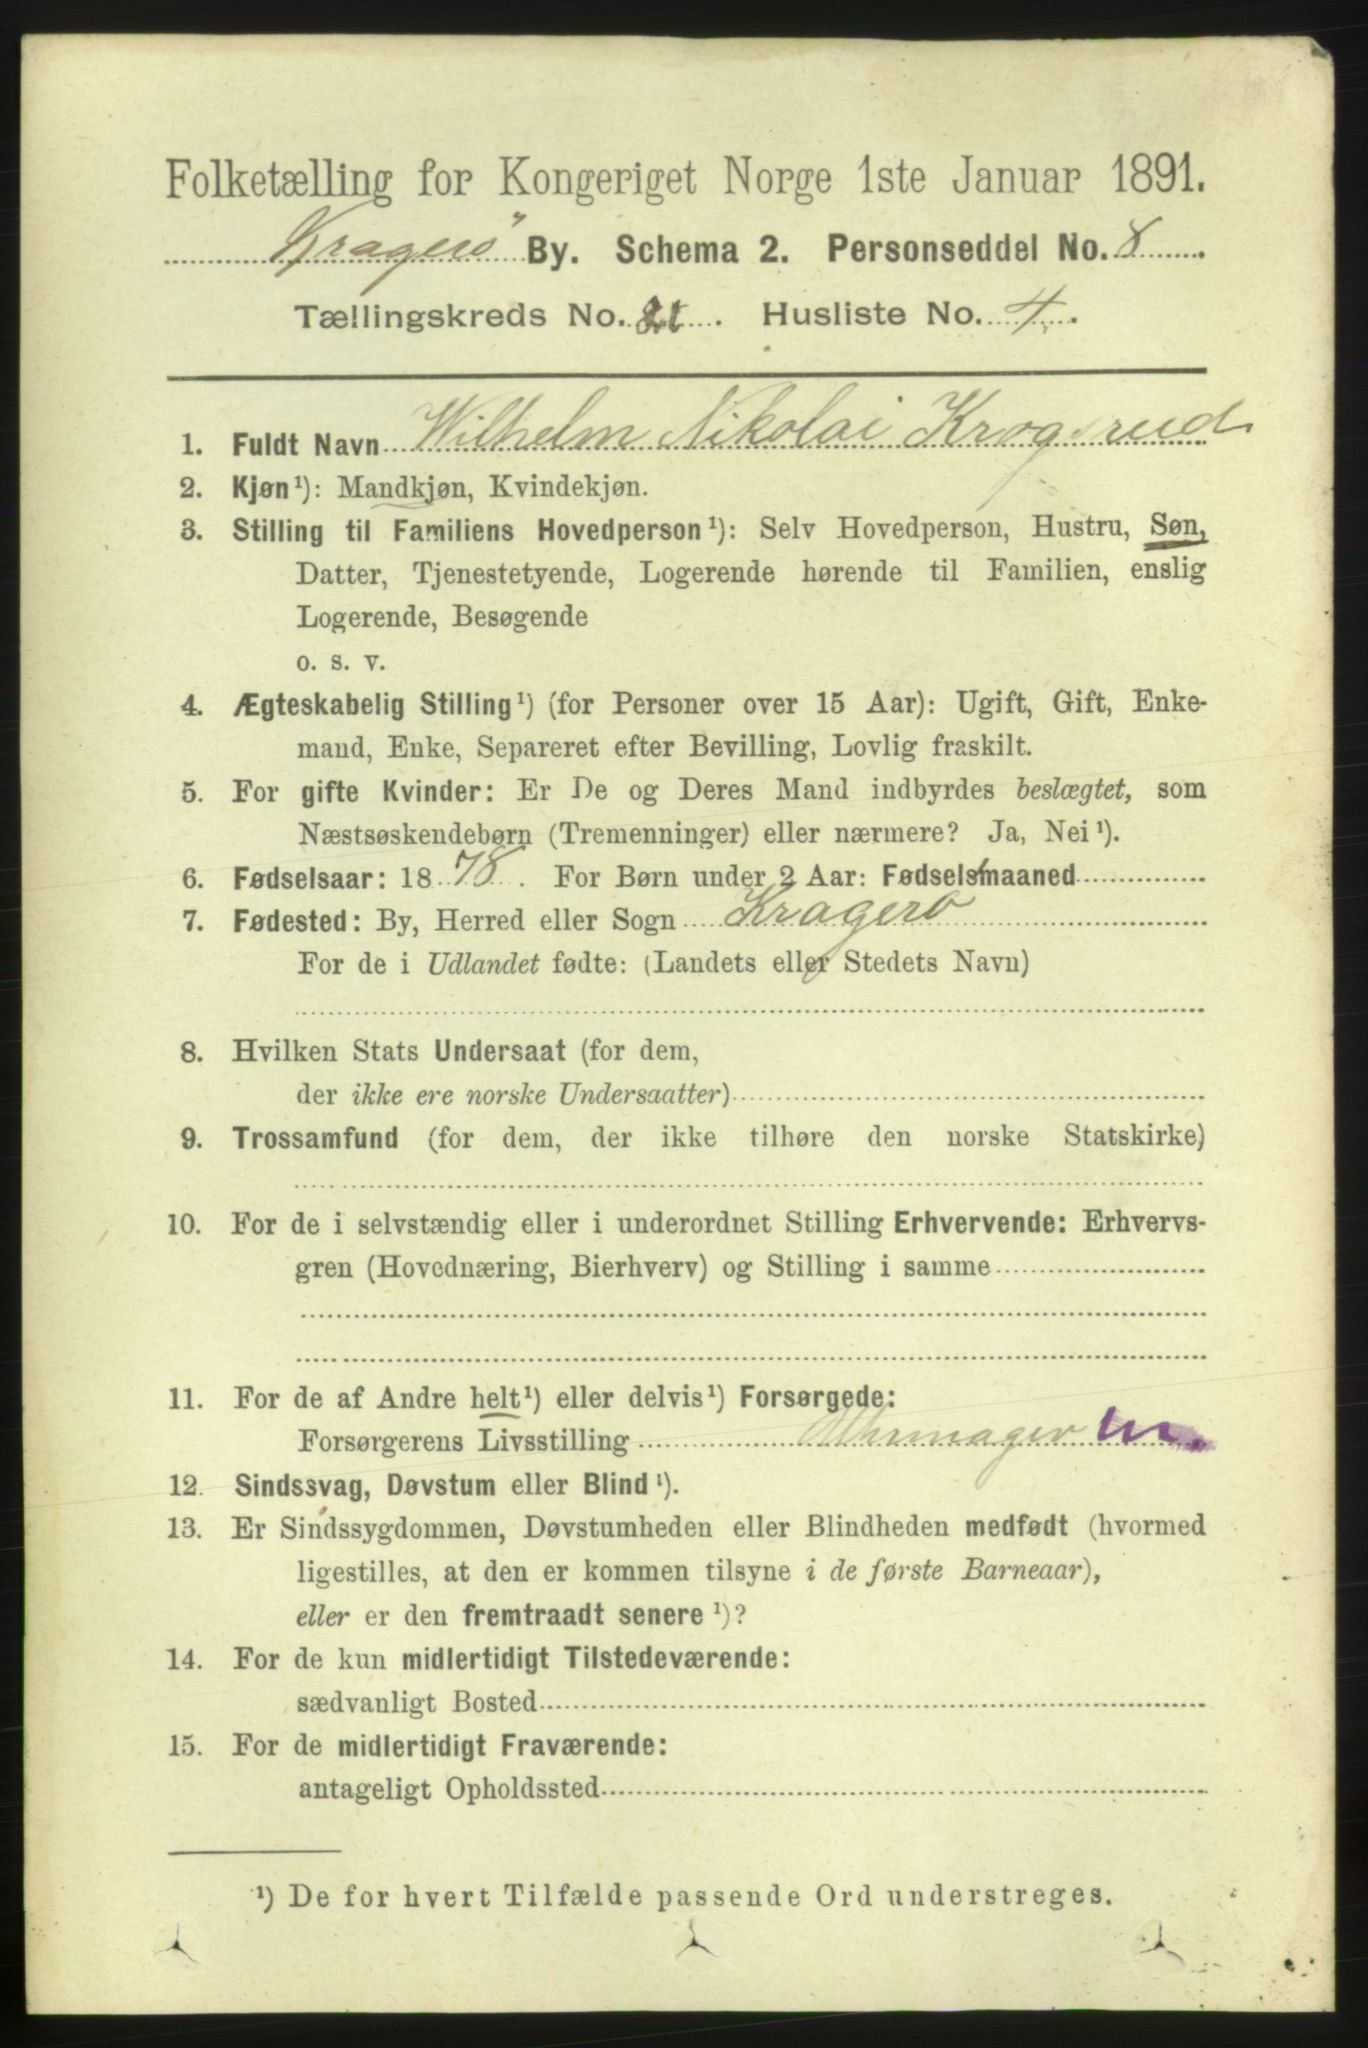 Folketælling for Kongeriget Norge 1ste Januar 1891.
Kragerø By. Schema 2. Personseddel No. 8
Tællingskreds No. 21. Husliste No. 4.
1. Fuldt Navn Wilhelm Nikolai Krogsrud
2. Kjøn¹): Mandkjøn, Kvindekjøn.
3. Stilling til Familiens Hovedperson¹): Selv Hovedperson, Hustru, Søn,
Datter, Tjenestetyende, Logerende hørende til Familien, enslig
Logerende, Besøgende
o. s. v.
4. Ægteskabelig Stilling¹) (for Personer over 15 Aar): Ugift, Gift, Enke-
mand, Enke, Separeret efter Bevilling, Lovlig fraskilt.
5. For gifte Kvinder: Er De og Deres Mand indbyrdes beslægtet, som
Næstsøskendebørn (Tremenninger) eller nærmere? Ja, Nei¹).
6. Fødselsaar: 1878. For Børn under 2 Aar: Fødselsmaaned
7. Fødested: By, Herred eller Sogn Kragerø
For de i Udlandet fødte: (Landets eller Stedets Navn)
8. Hvilken Stats Undersaat (for dem,
der ikke ere norske Undersaatter)
9. Trossamfund (for dem, der ikke tilhøre den norske Statskirke)
10. For de i selvstændig eller i underordnet Stilling Erhvervende: Erhvervs-
gren (Hovednæring, Bierhverv) og Stilling i samme
11. For de af Andre helt¹) eller delvis¹) Forsørgede:
Forsørgerens Livsstilling Uhrmager
12. Sindssvag, Døvstum eller Blind¹).
13. Er Sindssygdommen, Døvstumheden eller Blindheden medfødt (hvormed
ligestilles, at den er kommen tilsyne i de første Barneaar),
eller er den fremtraadt senere¹)?
14. For de kun midlertidigt Tilstedeværende:
sædvanligt Bosted
15. For de midlertidigt Fraværende:
antageligt Opholdssted
¹) De for hvert Tilfælde passende Ord understreges.